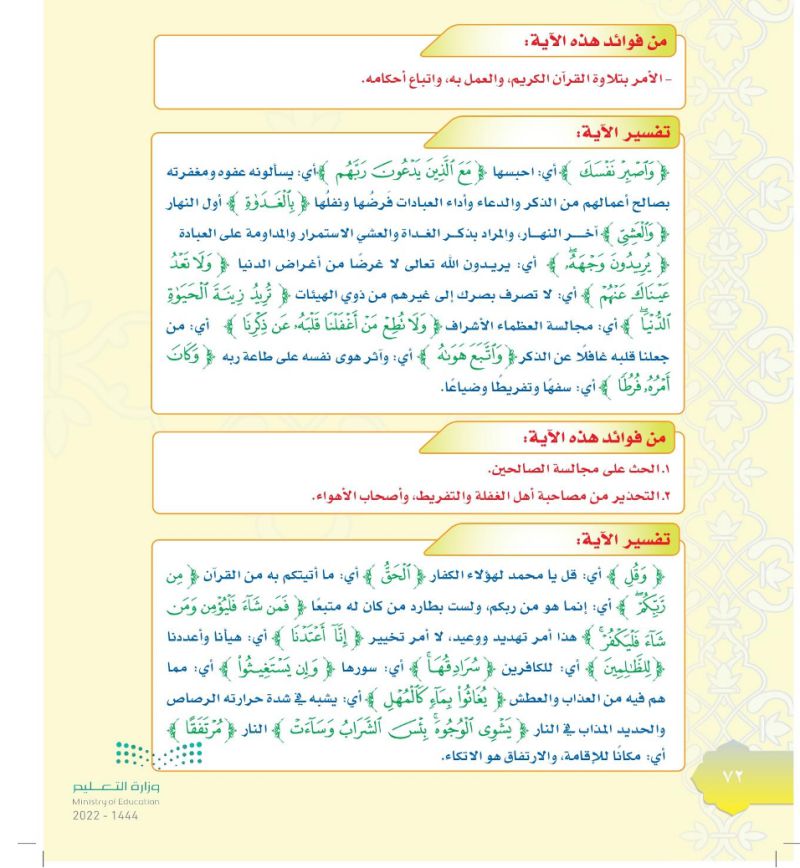 من فوائد هذه الآية:
- الأمر بتلاوة القرآن الكريم، والعمل به، واتباع أحكامه.
تفسير الآية:
﴿ وَٱصۡبِرۡ نَفۡسَكَ ﴾ أي: احبسها ﴿ مَعَ ٱلَّذِينَ يَدۡعُونَ رَبَّهُم ﴾ أي: يسألونه عفوه ومغفرته
بصالح أعمالهم من الذكر والدعاء وأداء العبادات فَرضُها ونفلُها ﴿ بِٱلۡغَدَوٰةِ ﴾ أول النهار
﴿ وَٱلۡعَشِيِّ ﴾ آخـــر النهــار، والمراد بذكـر الغـداة والعشي الاستمرار والمداومة على العبادة
﴿ يُرِيدُونَ وَجۡهَهُۥۖ ﴾ أي: يريـدون الله تعالى لا غرضًا من أغراض الدنيا ﴿ وَلَا تَعۡدُ
عَيۡنَاكَ عَنۡهُمۡ ﴾ أي: لا تصرف بصرك إلى غيرهم من ذوي الهيئات ﴿ تُرِيدُ زِينَةَ ٱلۡحَيَوٰةِ
ٱلدُّنۡيَاۖ ﴾ أي: مجالسة العظماء الأشراف ﴿ وَلَا تُطِعۡ مَنۡ أَغۡفَلۡنَا قَلۡبَهُۥ عَن ذِكۡرِنَا ﴾ أي: من
جعلنا قلبه غافلًا عن الذكر ﴿ وَٱتَّبَعَ هَوَىٰهُ ﴾ أي: وآثر هوى نفسه على طاعة ربه ﴿ وَكَانَ
أَمۡرُهُۥ فُرُطٗا ﴾ أي: سفهًا وتفريطًا وضياعًا.
من فوائد هذه الآية:
١. الحث على مجالسة الصالحين.
٢. التحذير من مصاحبة أهل الغفلة والتفريط، وأصحاب الأهواء.
تفسير الآية:
﴿ وَقُلِ ﴾ أي: قل يا محمد لهؤلاء الكفار ﴿ ٱلۡحَقُّ ﴾ أي: ما أتيتكم به من القرآن ﴿ مِن
رَّبِّكُمۡۖ ﴾ أي: إنما هو من ربكم، ولست بطارد من كان له متبعًا ﴿ فَمَن شَآءَ فَلۡيُؤۡمِن وَمَن
شَآءَ فَلۡيَكۡفُرۡۚ ﴾ هذا أمر تهديد ووعيد، لا أمر تخيير ﴿ إِنَّآ أَعۡتَدۡنَا ﴾ أي: هيأنا وأعددنا
﴿ لِلظَّـٰلِمِينَ ﴾ أي: للكافرين ﴿ سُرَادِقُهَاۚ ﴾ أي: سورها ﴿ وَإِن يَسۡتَغِيثُواْ ﴾ أي: مما
هم فيه من العذاب والعطش ﴿ يُغَاثُواْ بِمَآءٖ كَٱلۡمُهۡلِ ﴾ أي: يشبه في شدة حرارته الرصاص
والحديد المذاب في النار ﴿ يَشۡوِي ٱلۡوُجُوهَۚ بِئۡسَ ٱلشَّرَابُ وَسَآءَتۡ ﴾ النار ﴿ مُرۡتَفَقًا ﴾
أي: مكانًا للإقامة، والارتفاق هو الاتكاء.
٧٢
وزارة التعـــليم
Ministry of Education
2022 - 1444